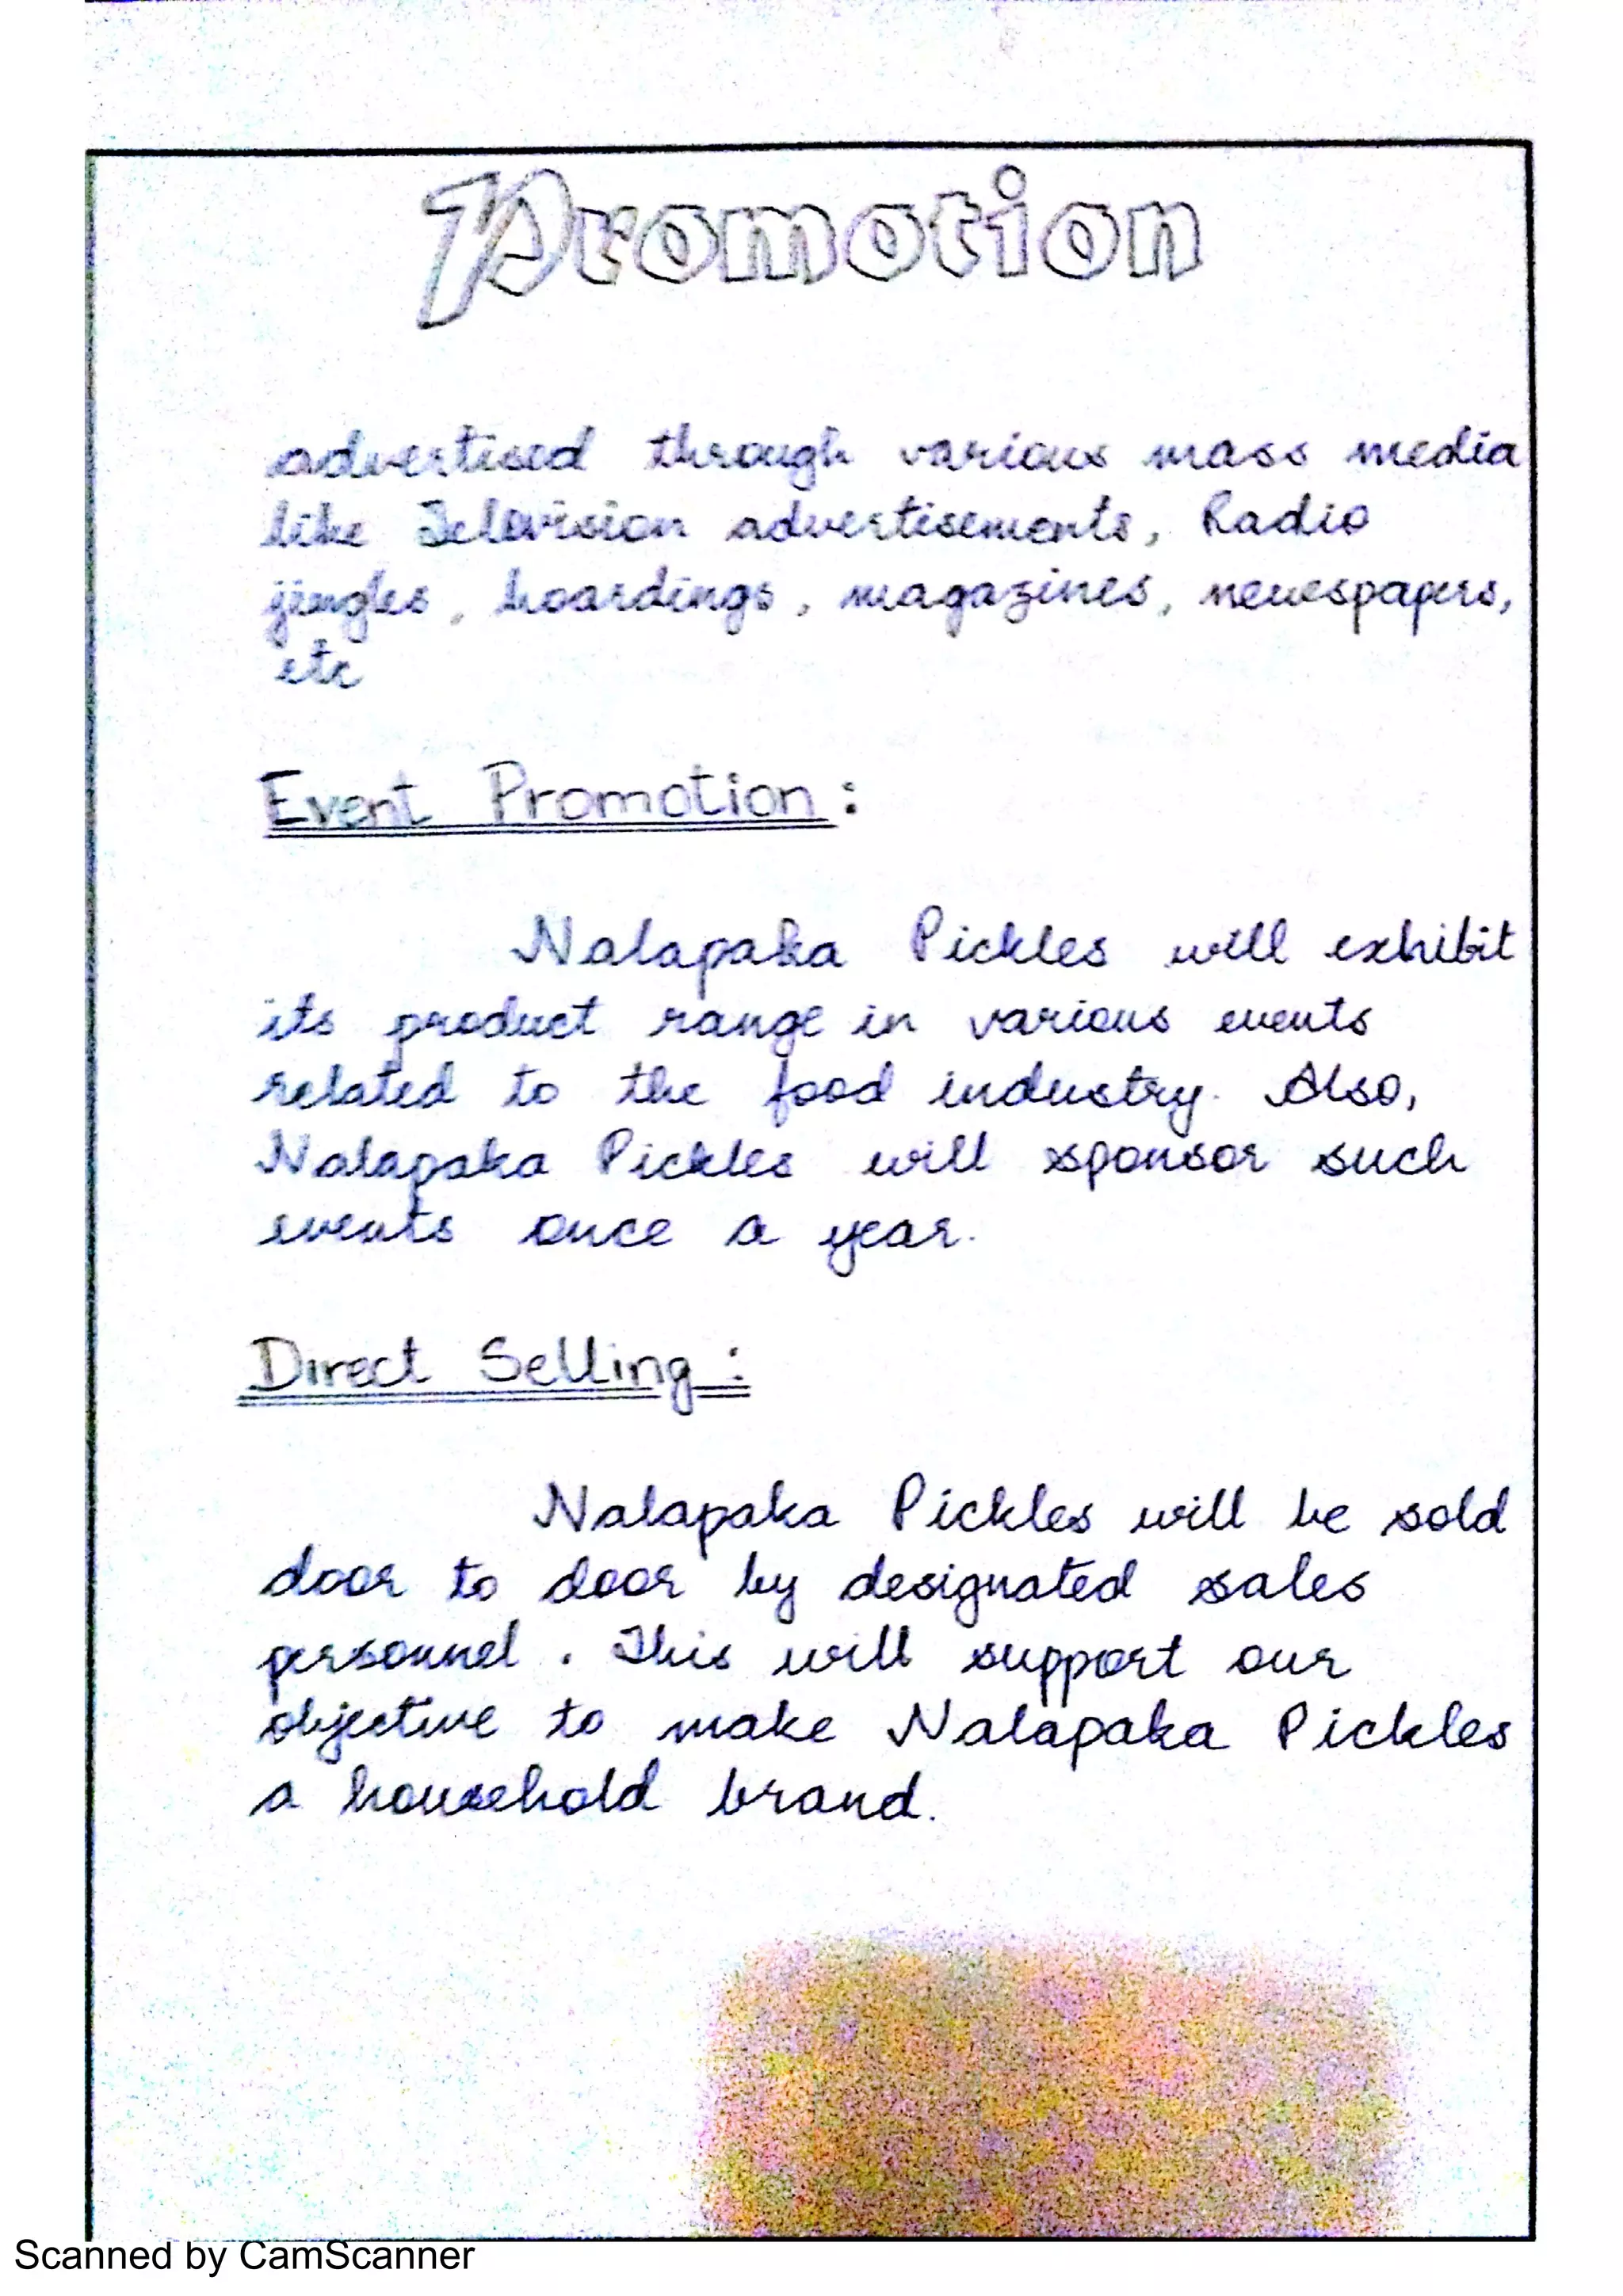 Promotion
advertised through various mass media
like Television advertisements, Radio
jingles, hoardings, magazines, newspapers,
etc
Event Promotion:
Nalapaka Pickles will exhibit
its product range in various events
related to the food industry. Also,
Nalapaka Pickles will sponsor such
events once a year.
Direct Selling:
Nalapaka Pickles will be sold
door to door by designated sales
personnel. This will support our
objective to make Nalapaka Pickles
a household brand.
Scanned by CamScanner